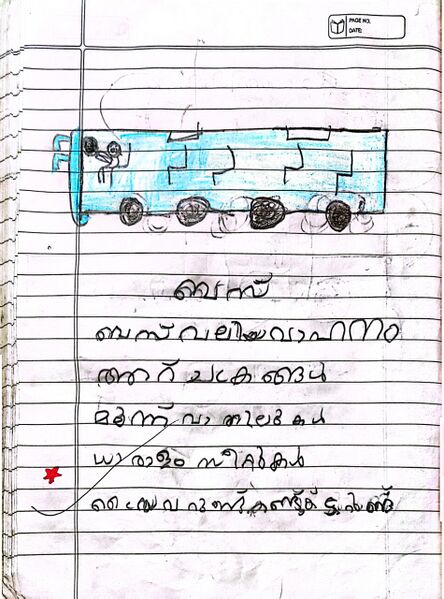 PAGE NO.
DATE:
ബസ്
ബസ് വലിയ വാഹനം
ആറ് ചക്രങ്ങൾ
മൂന്ന് വാതിലുകൾ
ധാരാളം സീറ്റുകൾ
ഡ്രൈവറുണ്ട് കണ്ടക്ടറുണ്ട്